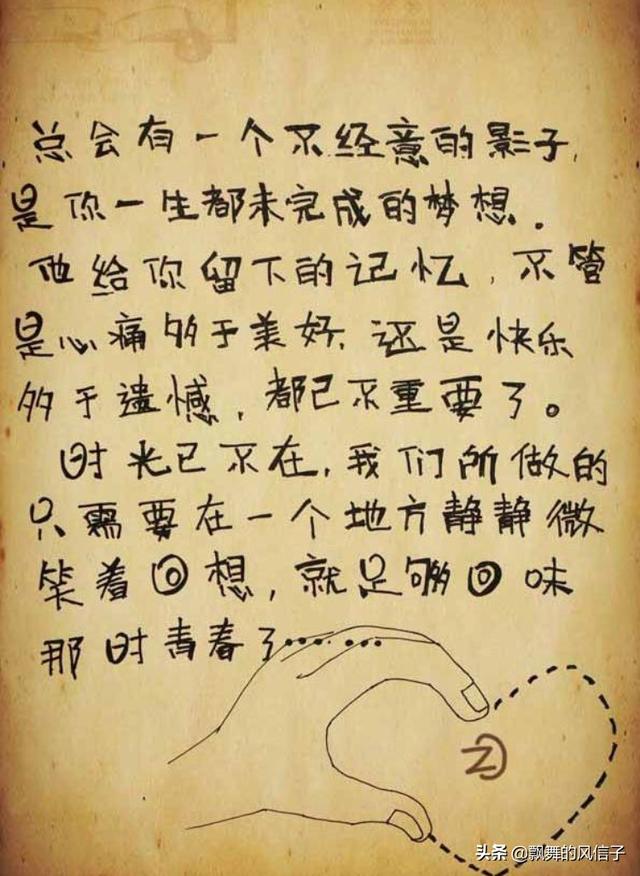 总会有一个不经意的影子,
是你一生都未完成的梦想.
他给你留下的记忆,不管
是心痛多于美好,还是快乐
多于遗憾,都已不重要了。
时光已不在,我们所做的
只需要在一个地方静静微
笑着回想,就足够回味
那时青春了......
头条 @飘舞的风信子